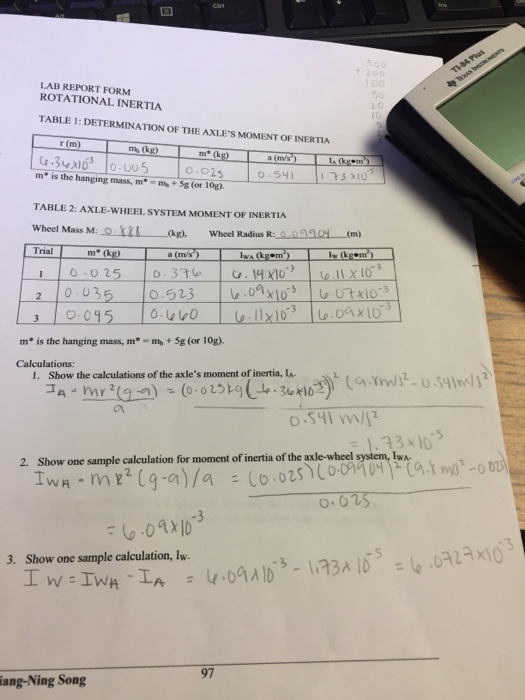 Ctrl
Ins
TI-84 Plus
TEXAS INSTRUMENTS
500
+ 200
100
50
20
10
LAB REPORT FORM
ROTATIONAL INERTIA
TABLE 1: DETERMINATION OF THE AXLE'S MOMENT OF INERTIA
r (m) mₕ (kg) m* (kg) a (m/s²) I_A (kg•m²)
6.36x10³ 0.005 0.025 0.541 1.73 x10⁻⁵
m* is the hanging mass, m* = mₕ + 5g (or 10g).
TABLE 2: AXLE-WHEEL SYSTEM MOMENT OF INERTIA
Wheel Mass M: 0.888 (kg), Wheel Radius R: 0.09904 (m)
Trial m* (kg) a (m/s²) I_WA (kg•m²) I_W (kg•m²)
1 0.025 0.376 6.14x10⁻³ 6.11 x 10⁻³
2 0.035 0.523 6.09x10⁻³ 6.07x10⁻³
3 0.045 0.660 6.11x10⁻³ 6.09x10⁻³
m* is the hanging mass, m* = mₕ + 5g (or 10g).
Calculations:
1. Show the calculations of the axle's moment of inertia, I_A.
I_A = mr²(g-a) / a = (0.025kg(6.36x10⁻³))² (9.8m/s² - 0.541m/s²) / 0.541 m/s²
= 1.73x10⁻⁵
2. Show one sample calculation for moment of inertia of the axle-wheel system, I_WA.
I_WA = mR²(g-a)/a = (0.025)(0.09904)²(9.8 m/s² - 0.025) / 0.025
= 6.09x10⁻³
3. Show one sample calculation, I_W.
I_W = I_WA - I_A = 6.09x10⁻³ - 1.73x10⁻⁵ = 6.0727x10⁻³
iang-Ning Song
97